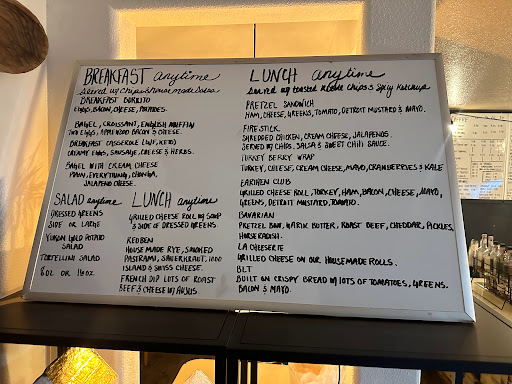 BREAKFAST anytime
served w/ chips & house made salsa
BREAKFAST BURRITO
EGGS, BACON, CHEESE, POTATOES.
BAGEL, CROISSANT, ENGLISH MUFFIN
TWO EGGS, APPLEWOOD BACON & CHEESE.
BREAKFAST CASSEROLE (GF, KETO)
CREAMY EGGS, SAUSAGE, CHEESE & HERBS.
BAGEL WITH CREAM CHEESE
PLAIN, EVERYTHING,
JALAPENO CHEESE.
SALAD anytime
DRESSED GREENS
SIDE OR LARGE
YUKON GOLD POTATO
SALAD
TORTELLINI SALAD
8 OZ OR 16 OZ
LUNCH anytime
GRILLED CHEESE ROLL W/ SOUP
& SIDE OF DRESSED GREENS.
REDBEN
HOUSE MADE RYE, SMOKED
PASTRAMI, SAUERKRAUT, 1000
ISLAND & SWISS CHEESE.
FRENCH DIP LOTS OF ROAST
BEEF & CHEESE W/ AUJUS.
LUNCH anytime
served w/ toasted Kettle Chips & Spicy Ketchup
PRETZEL SANDWICH
HAM, CHEESE, GREENS, TOMATO, DETROIT MUSTARD & MAYO.
FIRESTICK
SHREDDED CHICKEN, CREAM CHEESE, JALAPENOS.
SERVED W/ CHIPS, SALSA & SWEET CHILI SAUCE.
TURKEY BERRY WRAP
TURKEY, CHEESE, CREAM CHEESE, MAYO, CRANBERRIES & KALE
EARTHEN CLUB
GRILLED CHEESE ROLL, TURKEY, HAM, BACON, CHEESE, MAYO,
GREENS, DETROIT MUSTARD, TOMATO.
BAVARIAN
PRETZEL BUN, GARLIK BUTTER, ROAST BEEF, CHEDDAR, PICKLES,
HORSERADISH.
LA CHEESERIE
GRILLED CHEESE ON OUR HOUSEMADE ROLLS.
BLT
BUILT ON CRISPY BREAD W/ LOTS OF TOMATOES, GREENS.
BACON & MAYO.